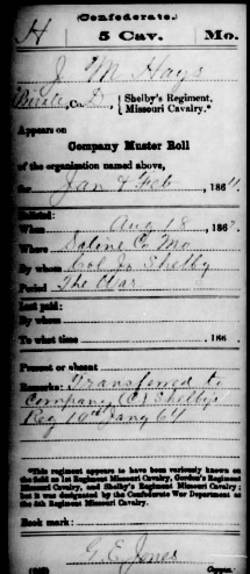 (Confederate.)
H 5 Cav. Mo.
J M Hays
Co. D, Shelby's Regiment,
Missouri Cavalry.*
Appears on
Company Muster Roll
of the organization named above,
for Jan & Feb, 1864.
Enlisted:
When Aug 18, 186
Where Saline Co Mo
By whom Col Jo Shelby
Period The War
Last paid:
By whom
To what time, 186 .
Present or absent
Remarks: Transferred to
Company (C) Shelby's
Reg 10th Jany 64
*This regiment appears to have been variously known on
the field as 1st Regiment Missouri Cavalry, Gordon's Regiment
Missouri Cavalry, and Shelby's Regiment Missouri Cavalry;
but it was designated by the Confederate War Department as
the 5th Regiment Missouri Cavalry.
Book mark:
G. E. Jones
(642) Copyist.